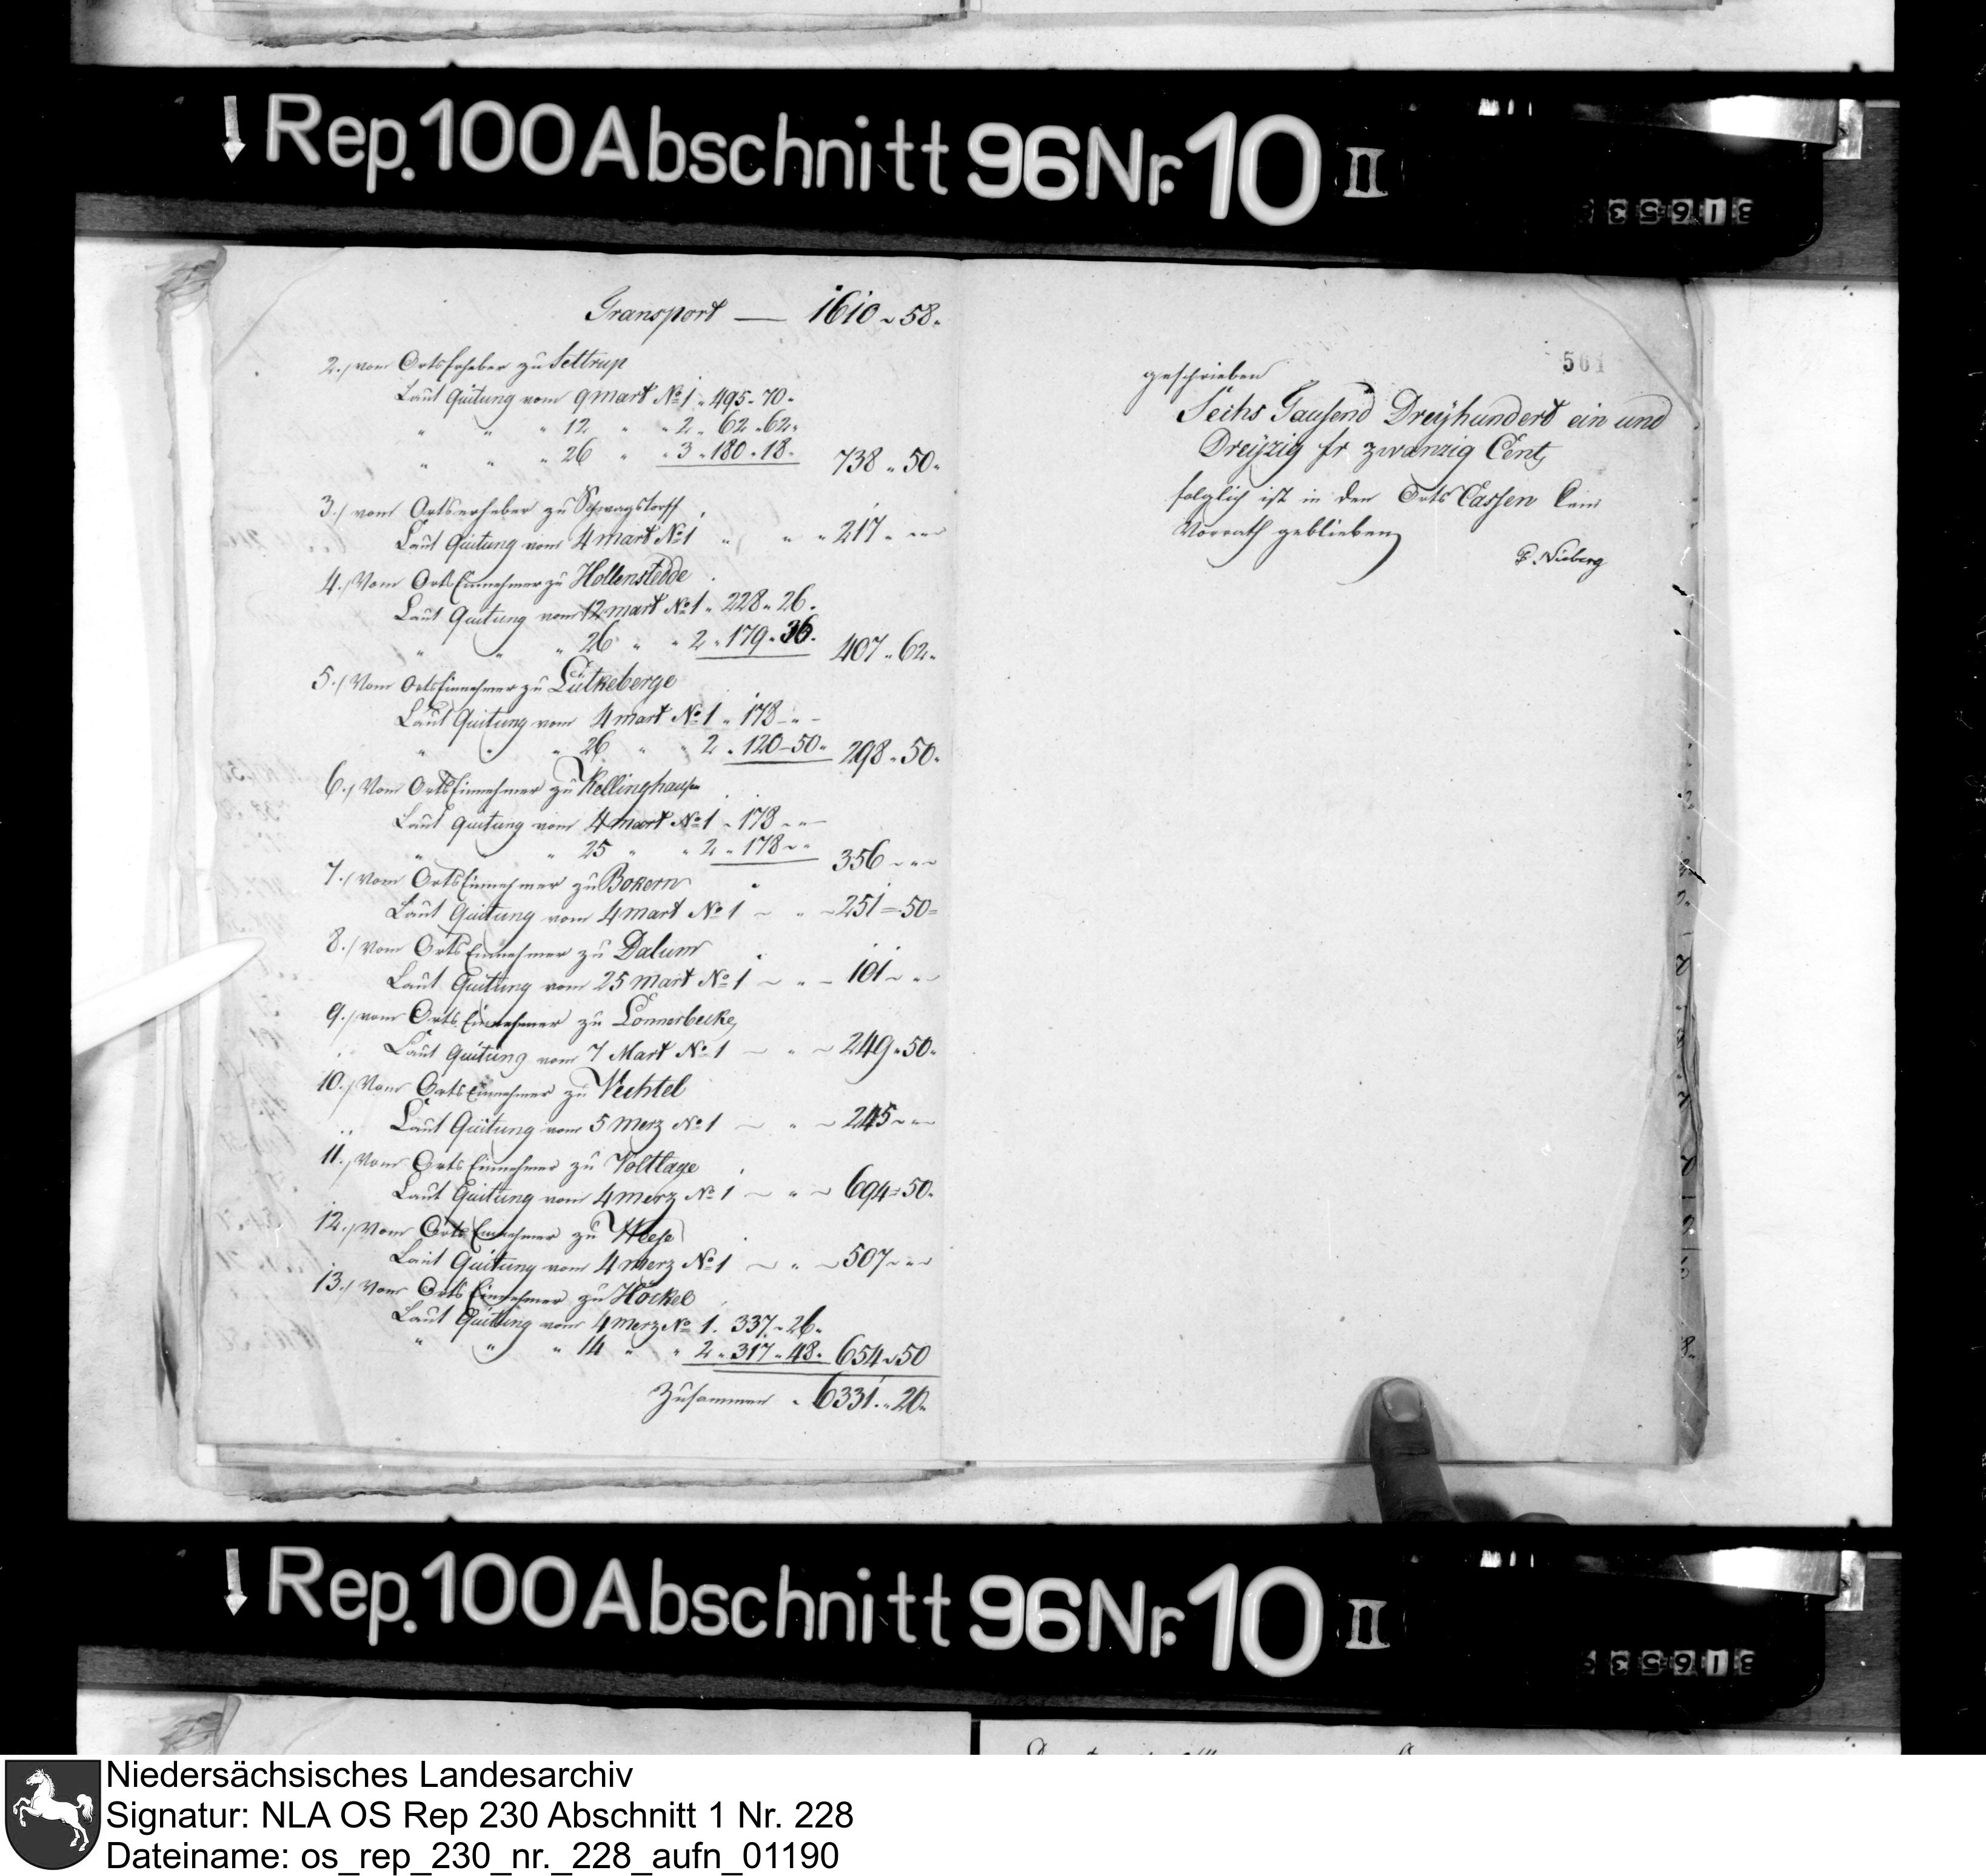 Rep. 100 Abschnitt 96 Nr. 10 II
Transport — 1610 „ 58 „
2./ vom Orts Erheber zu Settrup
Laut Quitung vom 9 mart No 1 „ 495 „ 70 „
„ „ „ 12 „ „ 2 „ 62 „ 62 „
„ „ „ 26 „ „ 3 „ 180 „ 18 „ 738 „ 50 „
3./ vom Ortserheber zu Schwagstorff
Laut Quitung vom 4 mart No 1 „ „ „ 217 „ „
4./ Vom Orts Einnehmer zu Hollenstedde
Laut Quitung vom 12 mart No 1 „ 228 „ 26 „
„ „ „ 26 „ „ 2 „ 179 „ 36 „ 407 „ 62 „
5./ Vom Orts Einnehmer zu Lütkeberge
Laut Quitung vom 4 mart No 1 „ 178 „ „
„ „ „ 26 „ „ 2 „ 120 – 50 „ 298 „ 50 „
6./ Vom Orts Einnehmer zu Kellinghausen
Laut Quitung vom 4 mart No 1 „ 178 „ „
„ „ 25 „ „ 2 „ 178 „ „ 356 „ „
7./ vom Orts Einnehmer zu Bokern
Laut Quitung vom 4 mart No 1 „ „ „ 251 = 50 =
8./ vom Orts Einnehmer zu Dalum
Laut Quitung vom 25 mart No 1 „ „ 101 „ „
9./ vom Orts Einnehmer zu Lonnerbecke
Laut Quitung vom 7 Mart No 1 „ „ 249 „ 50 „
10./ Vom Orts Einnehmer zu Vechtel
Laut Quitung vom 5 Merz No 1 „ „ 245 „ „
11./ Vom Orts Einnehmer zu Voltlage
Laut Quitung vom 4 merz No 1 „ „ 694 = 50 „
12./ Vom Orts Einnehmer zu Weese
Laut Quitung vom 4 merz No 1 „ „ 507 „ „
13./ Vom Orts Einnehmer zu Höckel
Laut Quittung vom 4 merz No 1. 337 „ 26 „
„ „ „ 14 „ „ 2 „ 317 „ 48 „ 654 „ 50
Zusammen „ 6331 „ 20 „
501
geschrieben
Sechs Tausend Dreyhundert ein und
Dreyzig fr zwanzig Cent,
folglich ist in den Orts Cassen kein
Vorrath geblieben
Nieberg
Rep. 100 Abschnitt 96 Nr. 10 II
Niedersächsisches Landesarchiv
Signatur: NLA OS Rep 230 Abschnitt 1 Nr. 228
Dateiname: os_rep_230_nr._228_aufn_01190